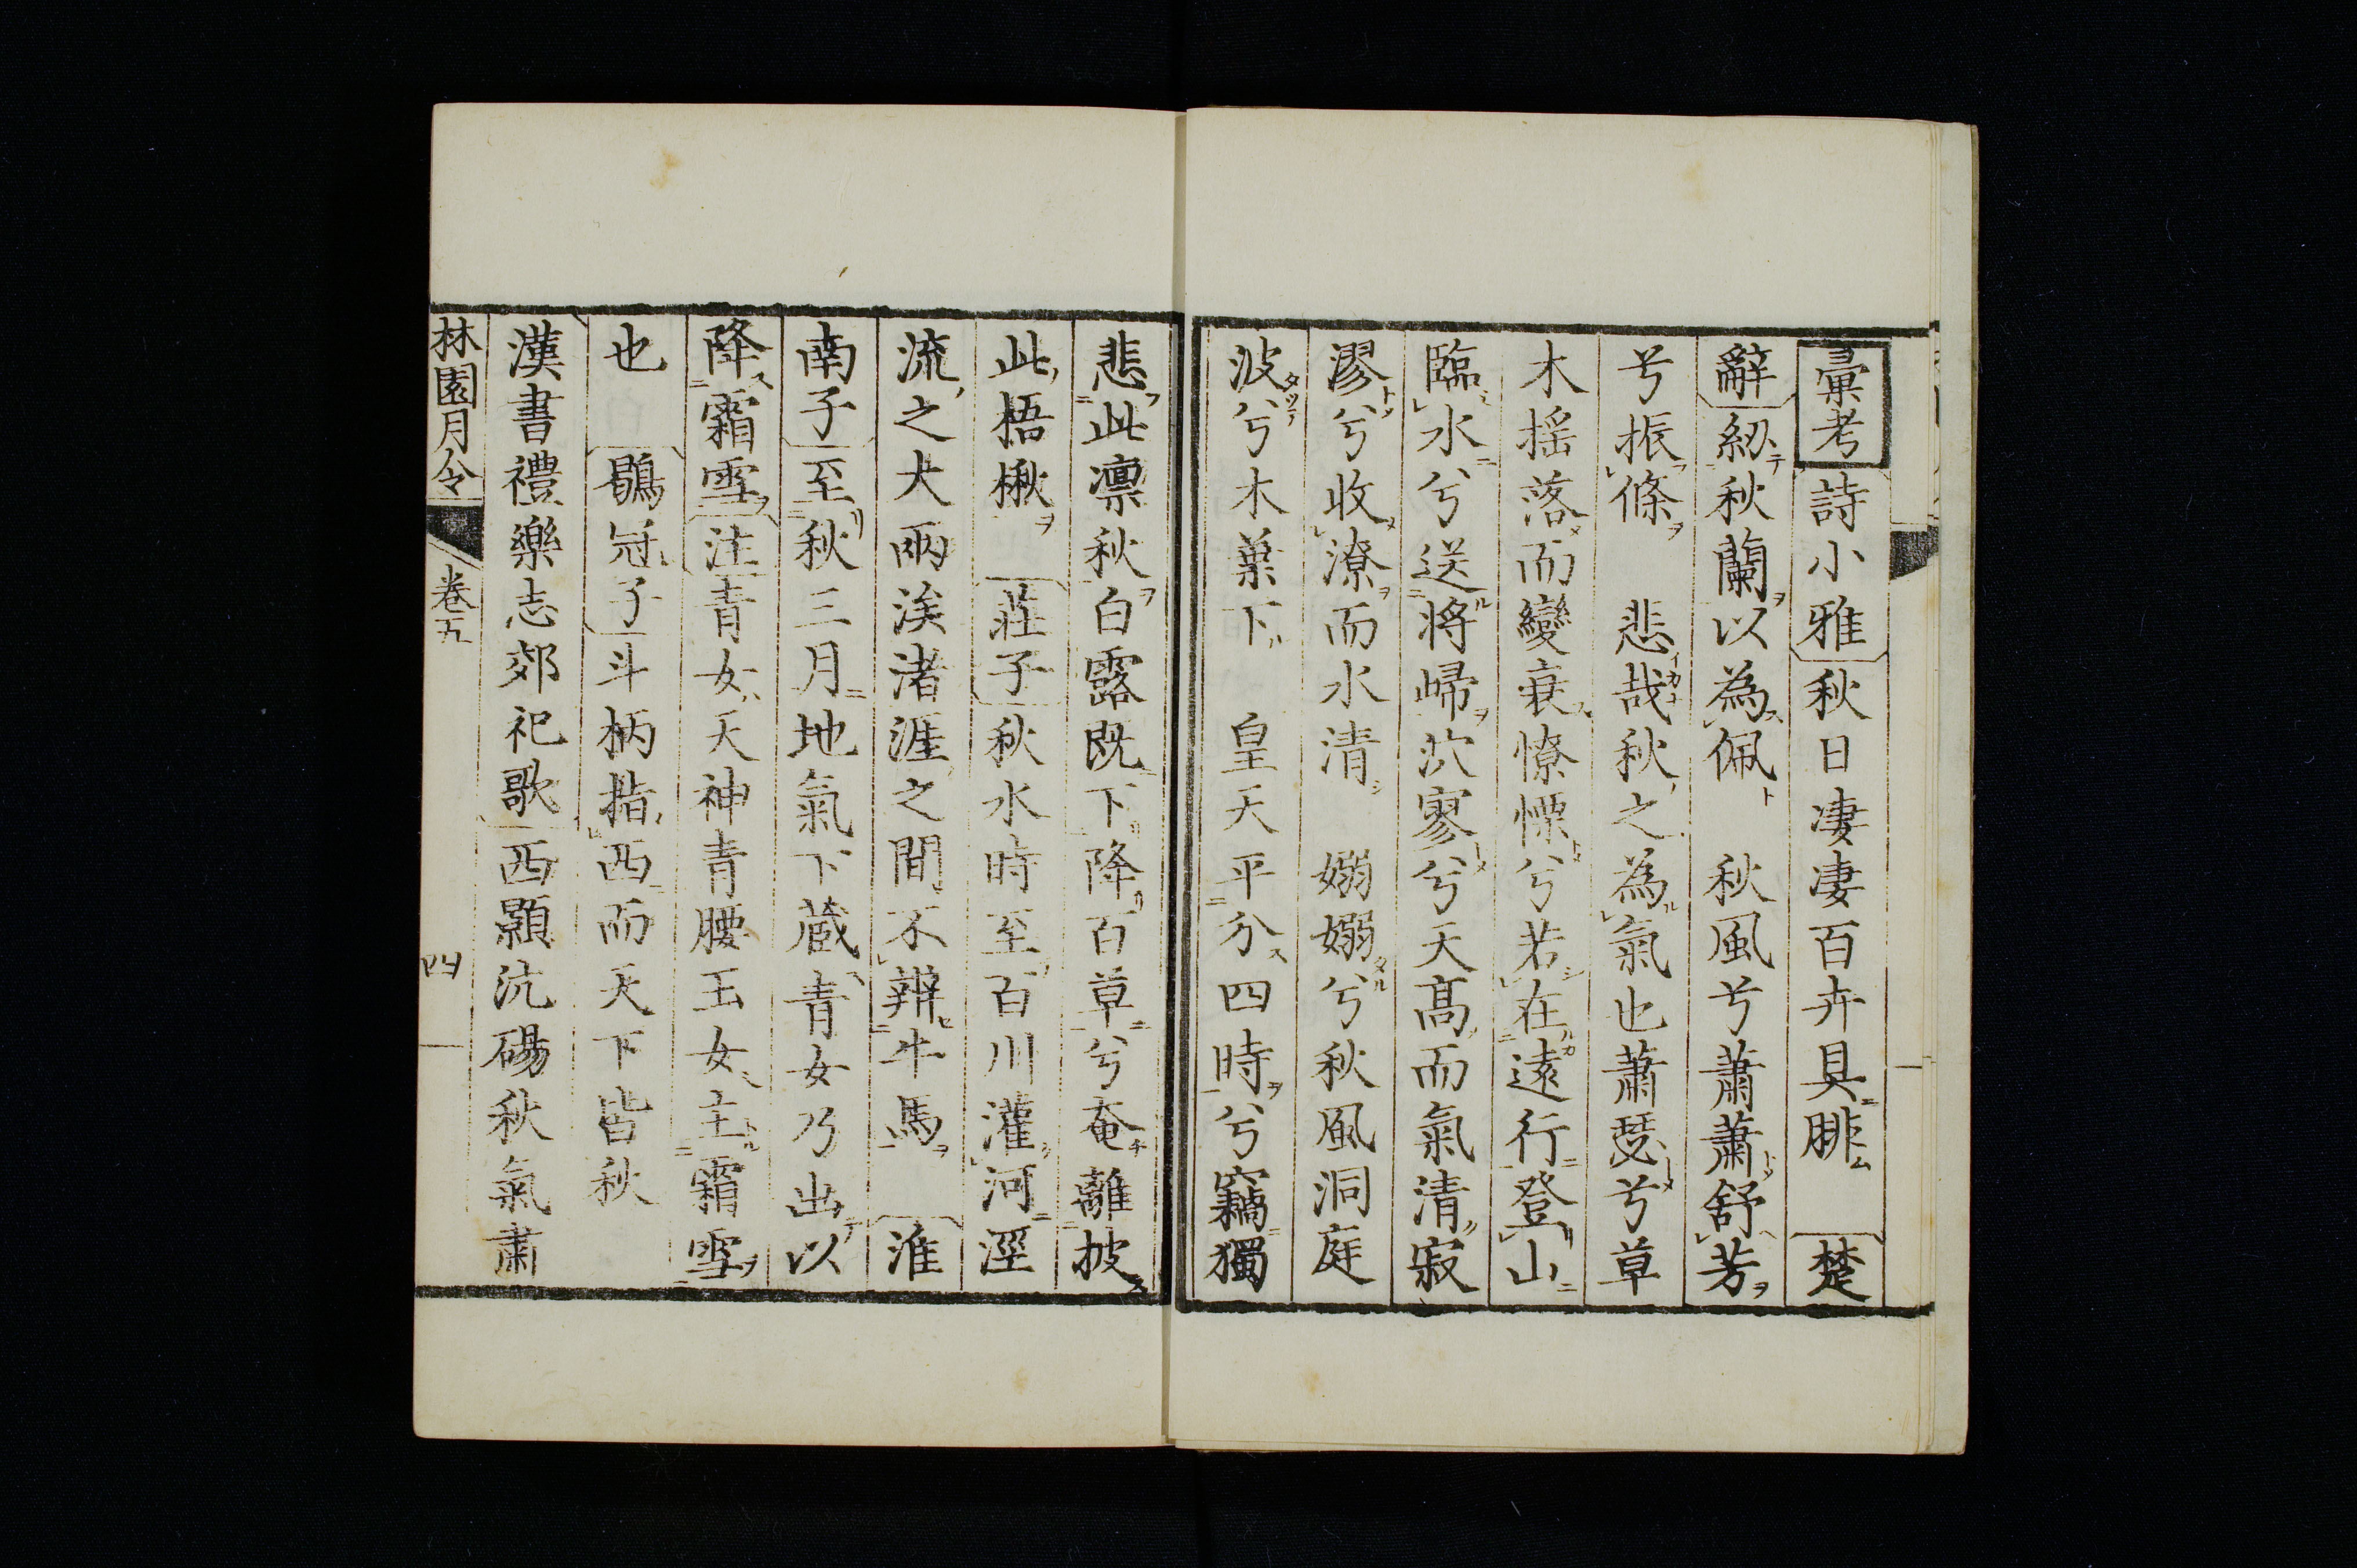 彙考詩小雅秋日凄凄百卉具腓　楚
辭紉秋蘭以為佩　秋風兮蕭蕭舒芳
兮振條　悲哉秋之為氣也蕭瑟兮草
木揺落而變衰憭慄兮若在遠行登山
臨水兮送將歸泬寥兮天髙而氣清寂
漻兮收潦而水清　嫋嫋兮秋風洞庭
波兮木葉下　皇天平分四時兮竊獨
悲此凛秋白露既下降百草兮奄離披
此梧楸　莊子秋水時至百川灌河涇
流之大兩涘渚涯之間不辨牛馬　淮
南子至秋三月地氣下藏青女乃出以
降霜雪注青女天神青腰玉女主霜雪
也　鶡冠子斗柄指西而天下皆秋
漢書禮樂志郊祀歌西顥沆碭秋氣肅
林園月令　卷五　四